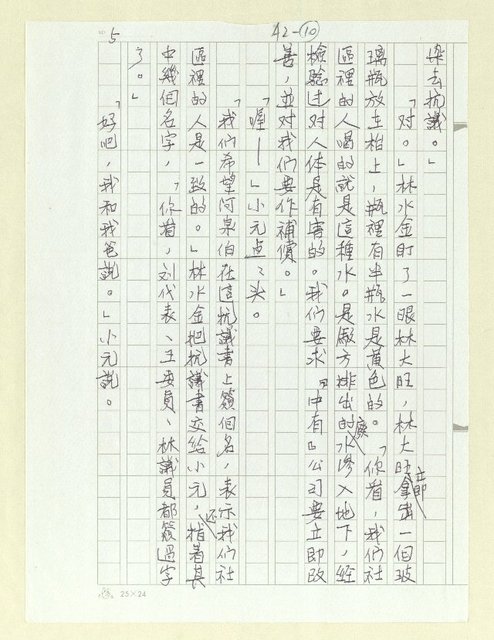 42-⑩
5
染去抗議。」
「對。」林水金盯了一眼林大旺，林大旺立即拿出一個玻
璃瓶放在枱上，瓶裡有半瓶水是黃色的。「你看，我們社
區裡的人喝的就是這種水。是廠方排出的廢水滲入地下，經
檢驗过对人体是有害的。我們要求『中有』公司要立即改
善，並对我們要作補償。」
「喔—」小元点点头。
「我們希望阿泉伯在這抗議書上簽個名，表示我們社
區裡的人是一致的。」林水金把抗議書交給小元，还指着其
中幾個名字，「你看，刘代表、王委員、林議員都簽過字
了。」
「好吧，我和我爸說。」小元說。
25×24